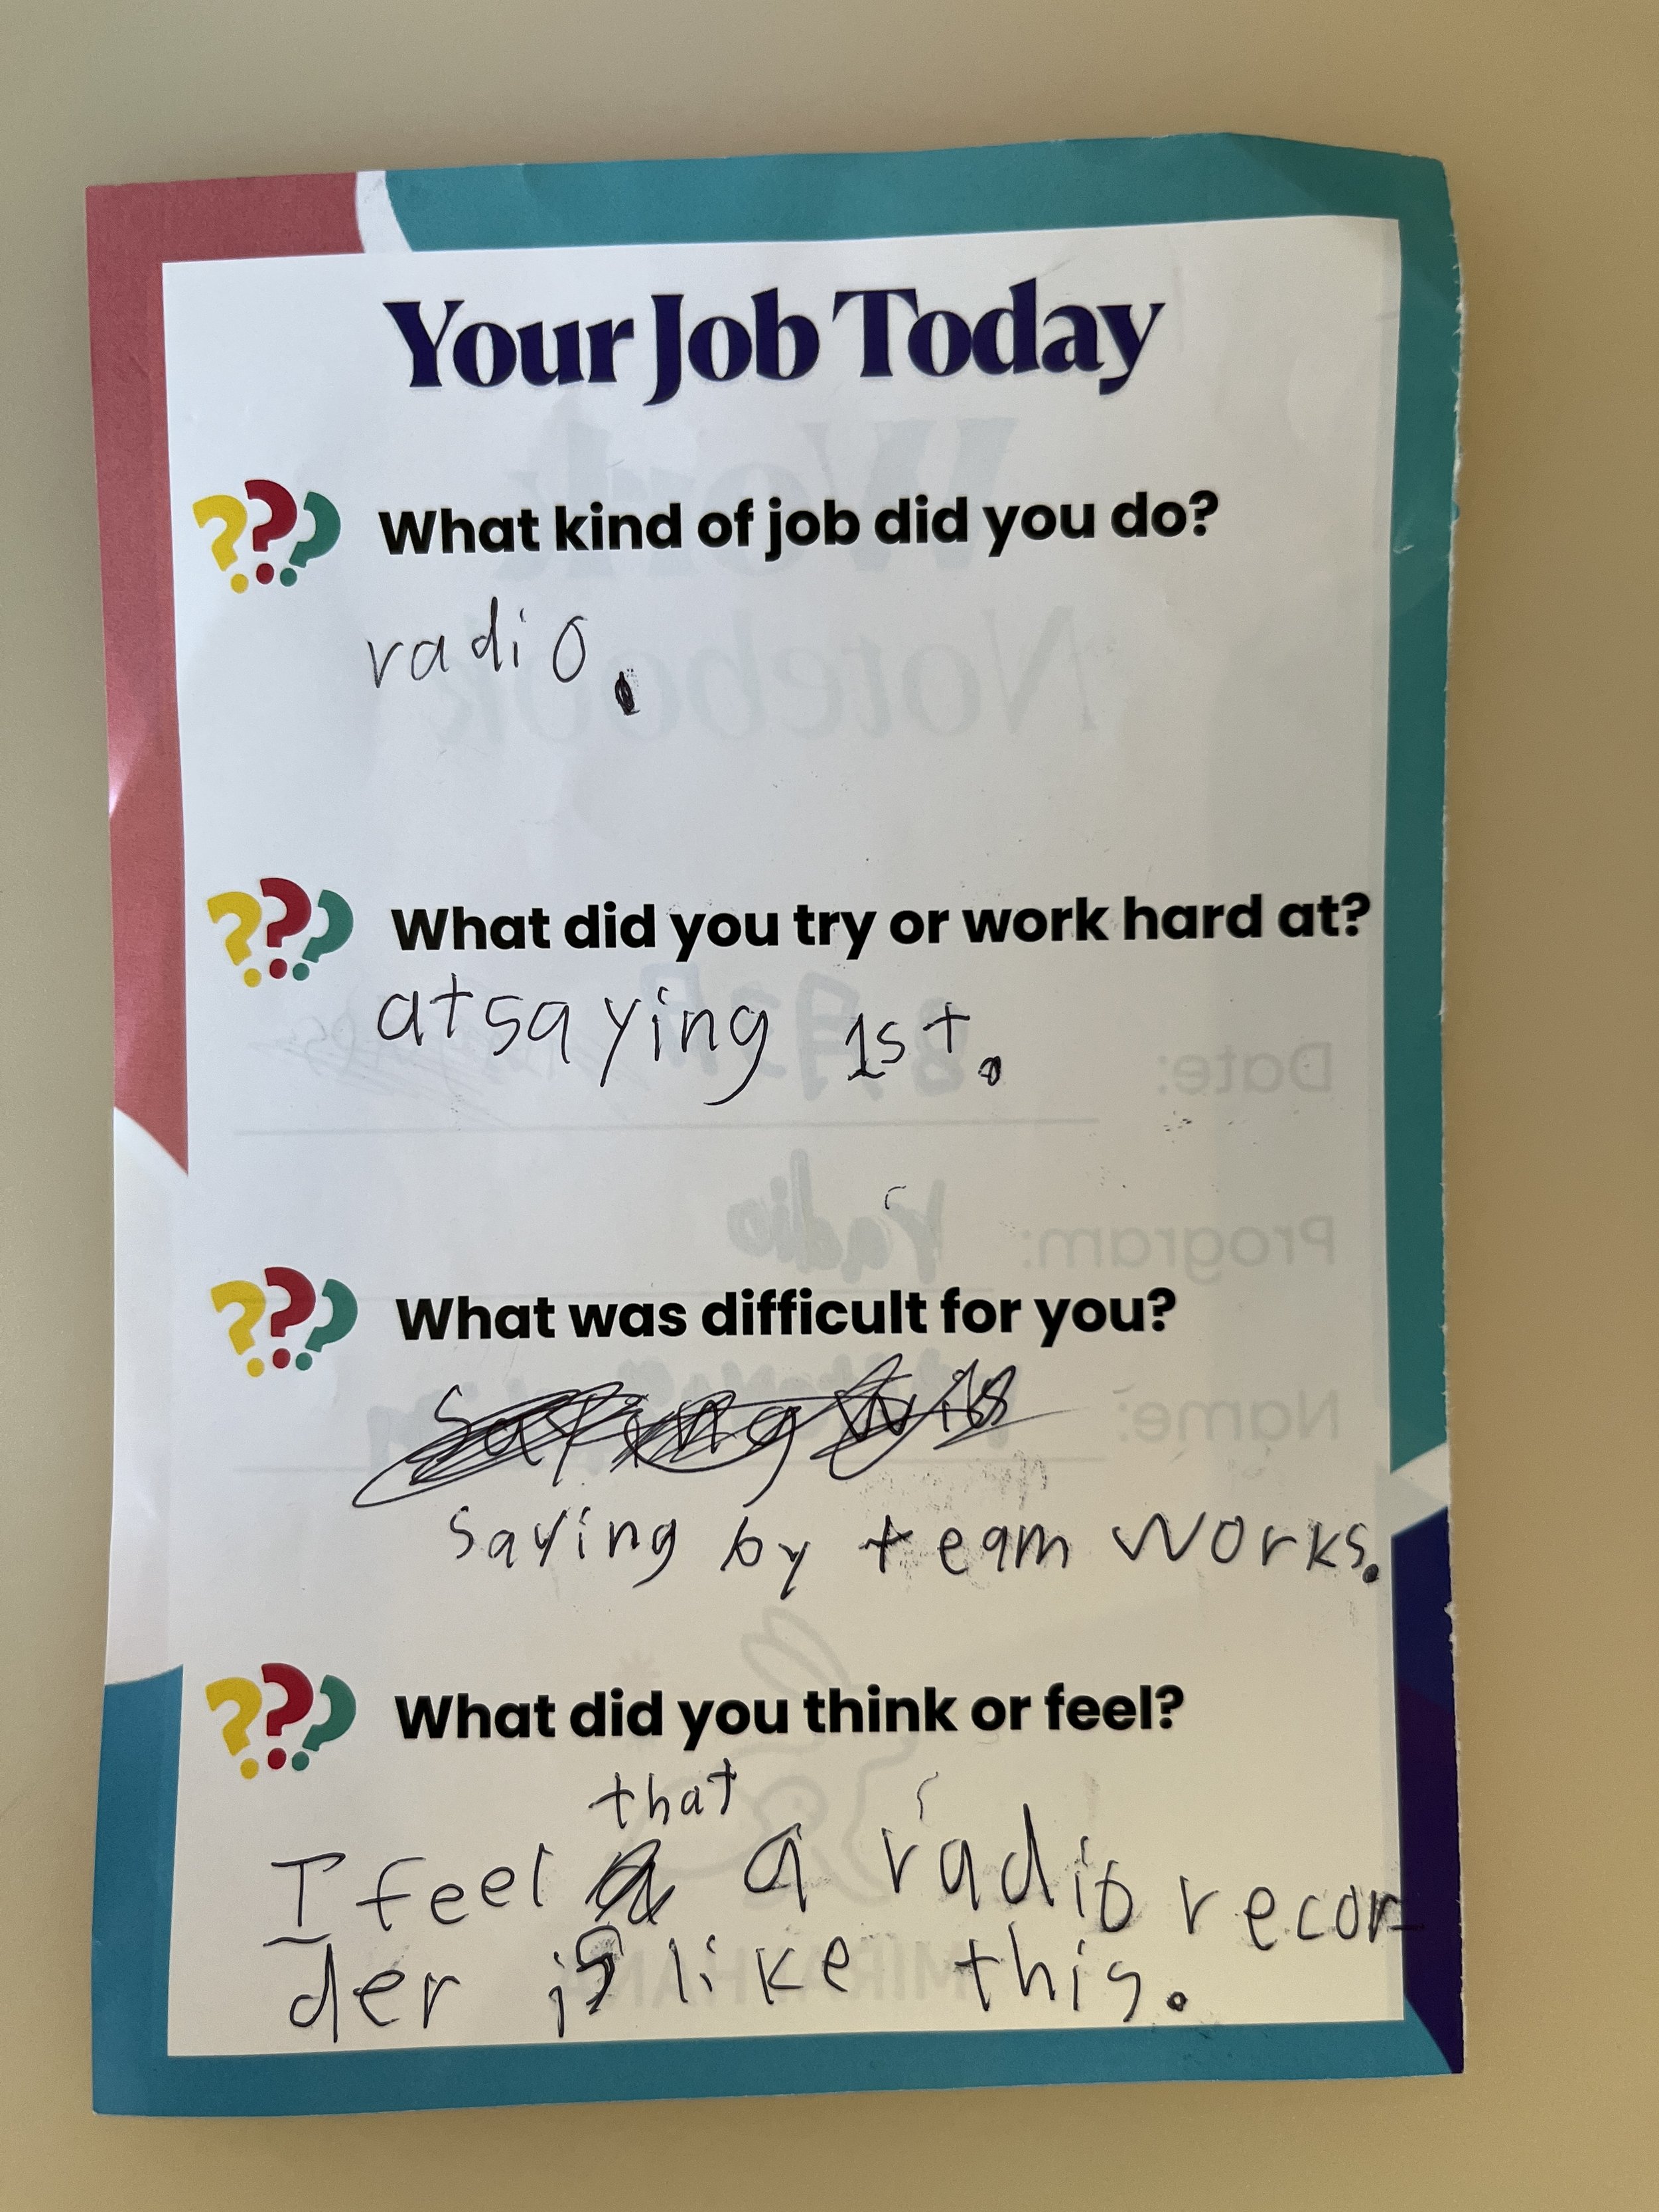 Your Job Today
??? What kind of job did you do?
radio.
??? What did you try or work hard at?
at saying 1st.
??? What was difficult for you?
saying by team works.
??? What did you think or feel?
that
I feel a radio recor-
der is like this.